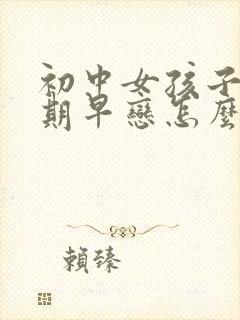 初中女孩子
期早戀怎麼
賴臻